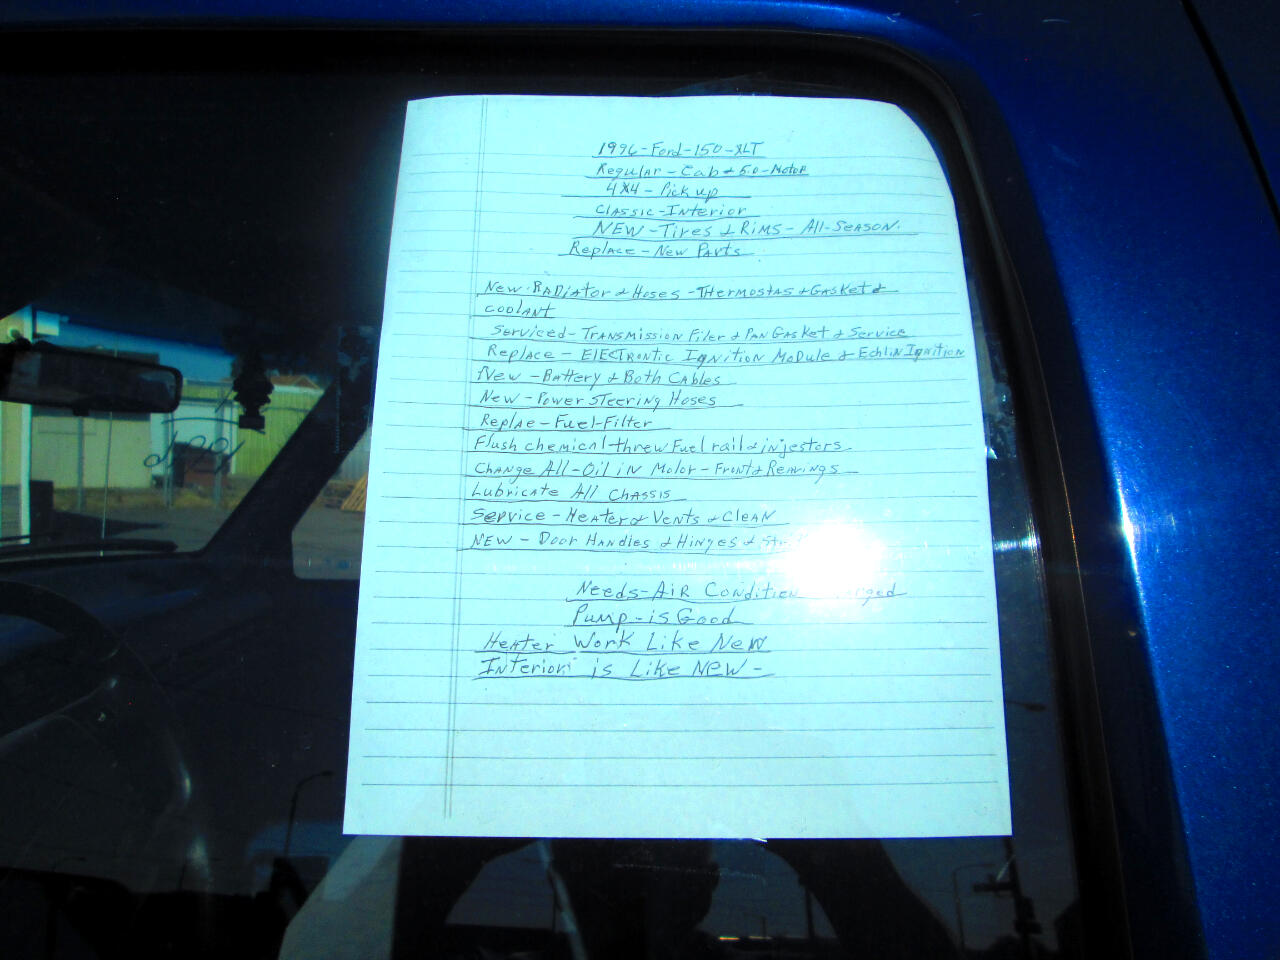 1996-Ford-150-XLT
Regular-Cab & 5.0-Motor
4X4-Pick up
Classic-Interior
NEW-Tires & Rims-All-Season.
Replace-New Parts
New-Radiator & Hoses-Thermostas & Gasket &
coolant
Serviced-Transmission Filer & Pan Gasket & Service
Replace-Electrontic Ignition Module & Echlin Ignition
New-Battery & Both Cables
New-Power Steering Hoses
Replae-Fuel-Filter
Flush chemical threw Fuel rail & injestors
Change All-Oil in Motor-Front & Rearings
Lubricate All Chassis
Service-Heater & Vents & Clean
NEW-Door Handles & Hinges &
Needs-Air Condition
Pump-is Good
Heater Work Like New
Interior is Like NEW-